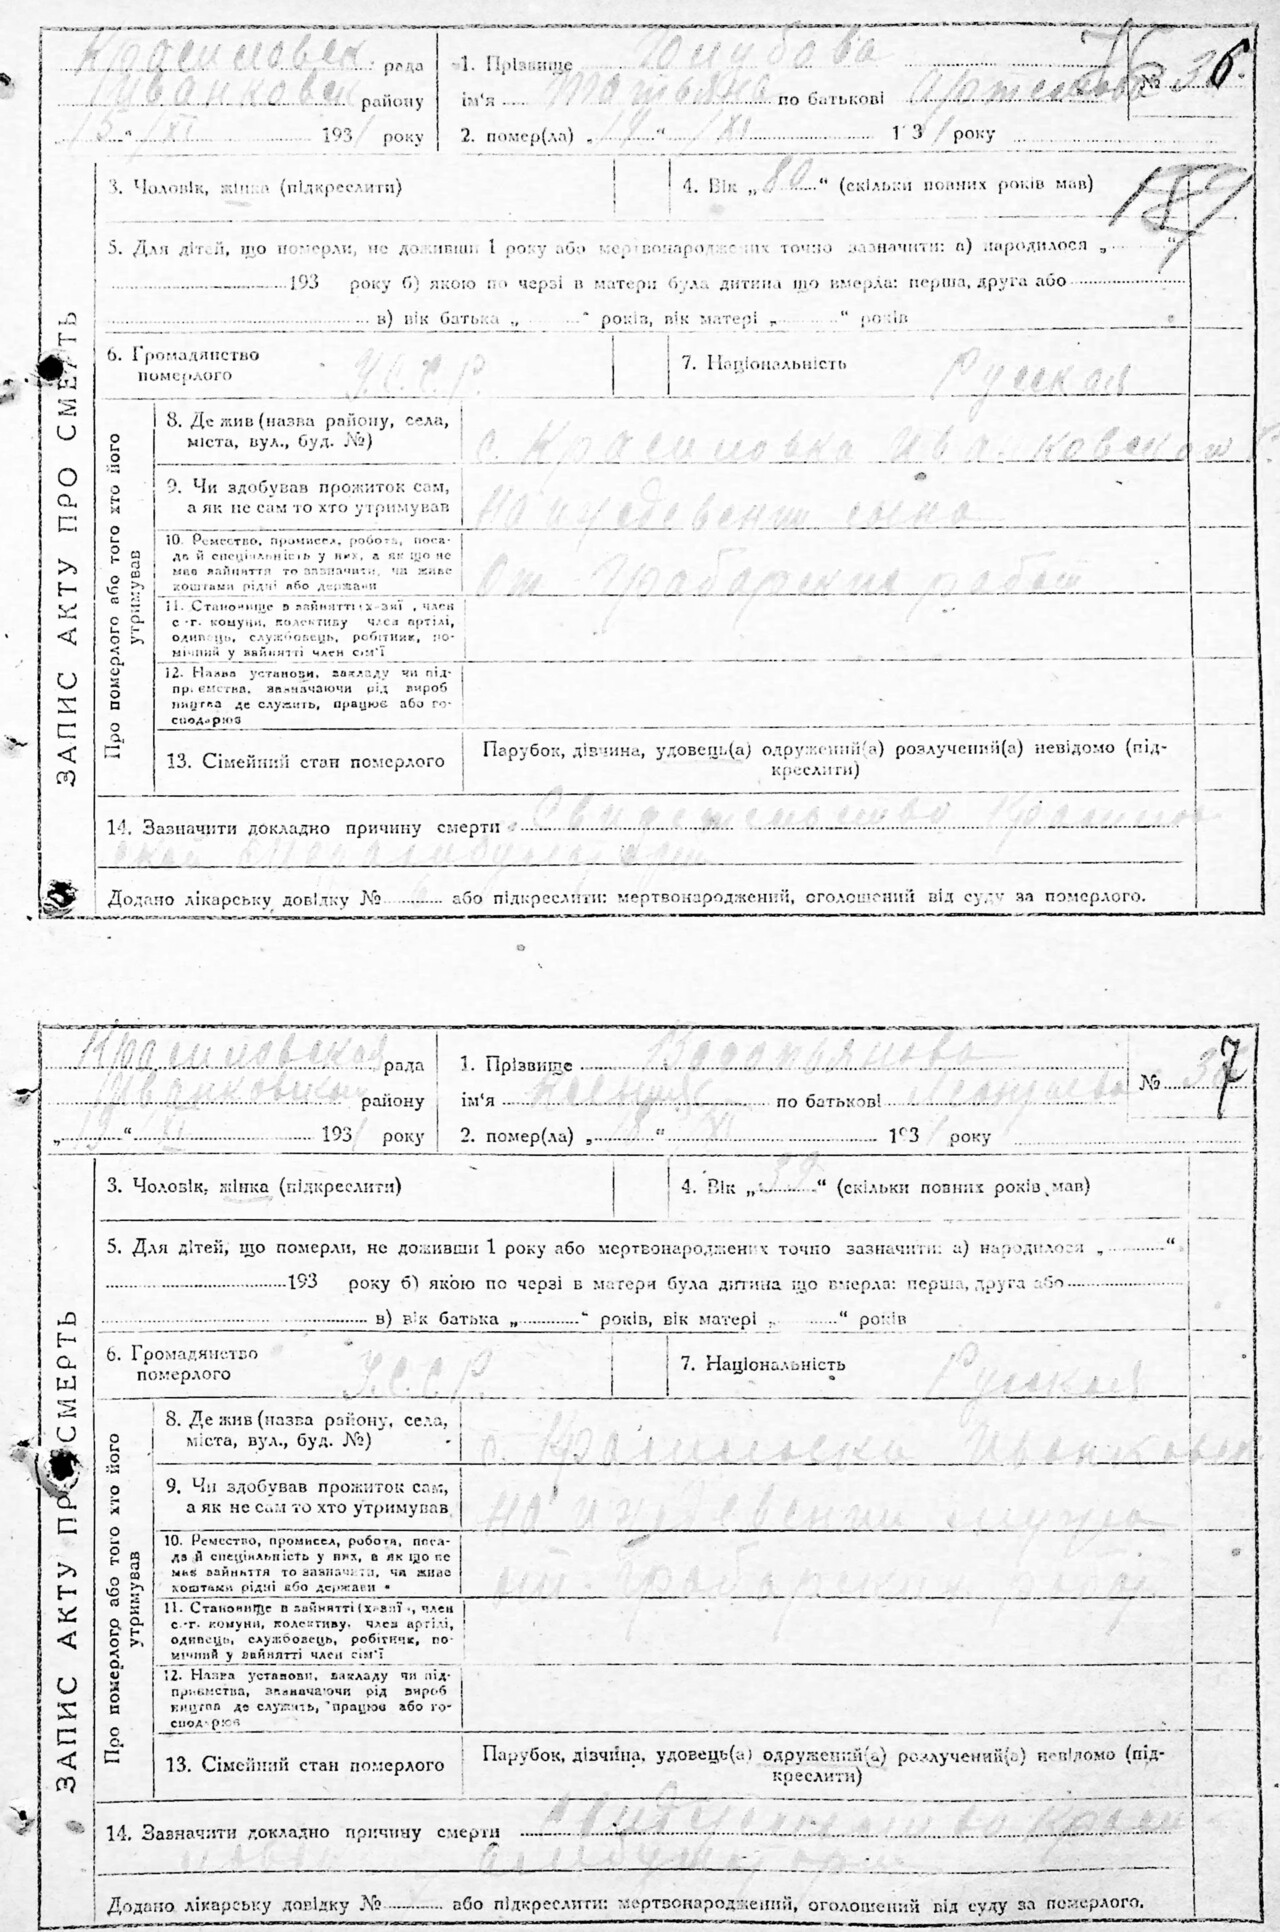 рада
району
193 1 року
1. Прізвище Голубова
ім'я Татьяна по батькові
№ 36.
2. помер(ла) „ “ XI 1931 року
3. Чоловік, жінка (підкреслити)
4. Вік „80“ (скільки повних років мав)
5. Для дітей, що померли, не доживши 1 року або мертвонароджених точно зазначити: а) народилося „ “
193 року б) якою по черзі в матери була дитина що вмерла: перша, друга або
в) вік батька „ “ років, вік матері „ “ років
6. Громадянство
померлого
У.С.С.Р.
7. Національність Русская
ЗАПИС АКТУ ПРО СМЕРТЬ
Про померлого або того хто його
утримував
8. Де жив (назва району, села,
міста, вул., буд. №)
с.
9. Чи здобував прожиток сам,
а як не сам то хто утримував
На иждевении сына
10. Ремество, промисел, робота, поса-
да й спеціяльність у них, а як що не
мав зайняття то зазначити, чи живе
коштами рідні або держави
От Грабарских работ
11. Становище в зайнятті (х-зяї , член
с.-г. комуни, колективу член артілі,
одинець, службовець, робітник, по-
мічний у зайнятті член сім'ї
12. Назва установи, закладу чи під-
приємства, зазначаючи рід вироб
ництва де служить, працює або го-
сподарює
13. Сімейний стан померлого
Парубок, дівчина, удовець(а) одружений(а) розлучений(а) невідомо (під-
креслити)
14. Зазначити докладно причину смерти Свидетельство
Додано лікарську довідку № або підкреслити: мертвонароджений, оголошений від суду за померлого.
рада
району
„19“ XI 1931 року
1. Прізвище
ім'я по батькові
№ 37
2. помер(ла) „18“ XI 1931 року
3. Чоловік, жінка (підкреслити)
4. Вік „ “ (скільки повних років мав)
5. Для дітей, що померли, не доживши 1 року або мертвонароджених точно зазначити: а) народилося „ “
193 року б) якою по черзі в матери була дитина що вмерла: перша, друга або
в) вік батька „ “ років, вік матері „ “ років
6. Громадянство
померлого
У.С.С.Р.
7. Національність Русская
ЗАПИС АКТУ ПРО СМЕРТЬ
Про померлого або того хто його
утримував
8. Де жив (назва району, села,
міста, вул., буд. №)
с.
9. Чи здобував прожиток сам,
а як не сам то хто утримував
на иждевении мужа
10. Ремество, промисел, робота, поса-
да й спеціяльність у них, а як що не
мав зайняття то зазначити, чи живе
коштами рідні або держави
от Грабарских работ
11. Становище в зайнятті (х-зяї , член
с.-г. комуни, колективу, член артілі,
одинець, службовець, робітник, по-
мічний у зайнятті член сім'ї
12. Назва установи, закладу чи під-
приємства, зазначаючи рід вироб
ництва де служить, працює або го-
сподарює
13. Сімейний стан померлого
Парубок, дівчина, удовець(а) одружений(а) розлучений(а) невідомо (під-
креслити)
14. Зазначити докладно причину смерти
Додано лікарську довідку № або підкреслити: мертвонароджений, оголошений від суду за померлого.